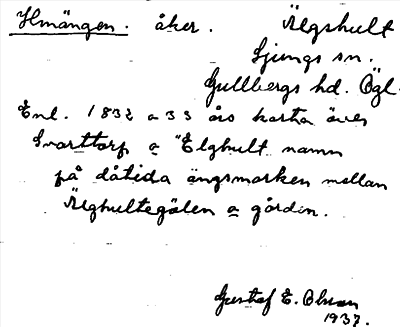 Hmängen. åker. Älgshult
Ljungs sn.
Gullbergs hd. Ögl.
Enl. 1832 o 33 års karta över
Svarttorp o "Elghult namn
på dåtida ängsmarken mellan
Älghultegölen o gården.
Gustaf E. Olsson
1937.